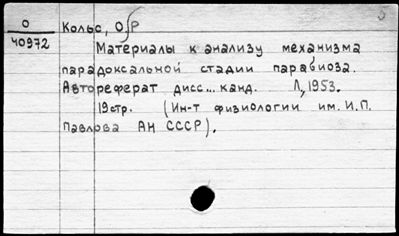 О
40972
Кольс, О Р
Материалы к анализу механизма
парадоксальной стадии парабиоза.
Автореферат дисс... канд. Л, 1953.
19стр. (Ин-т физиологии им. И.П.
Павлова АН СССР).